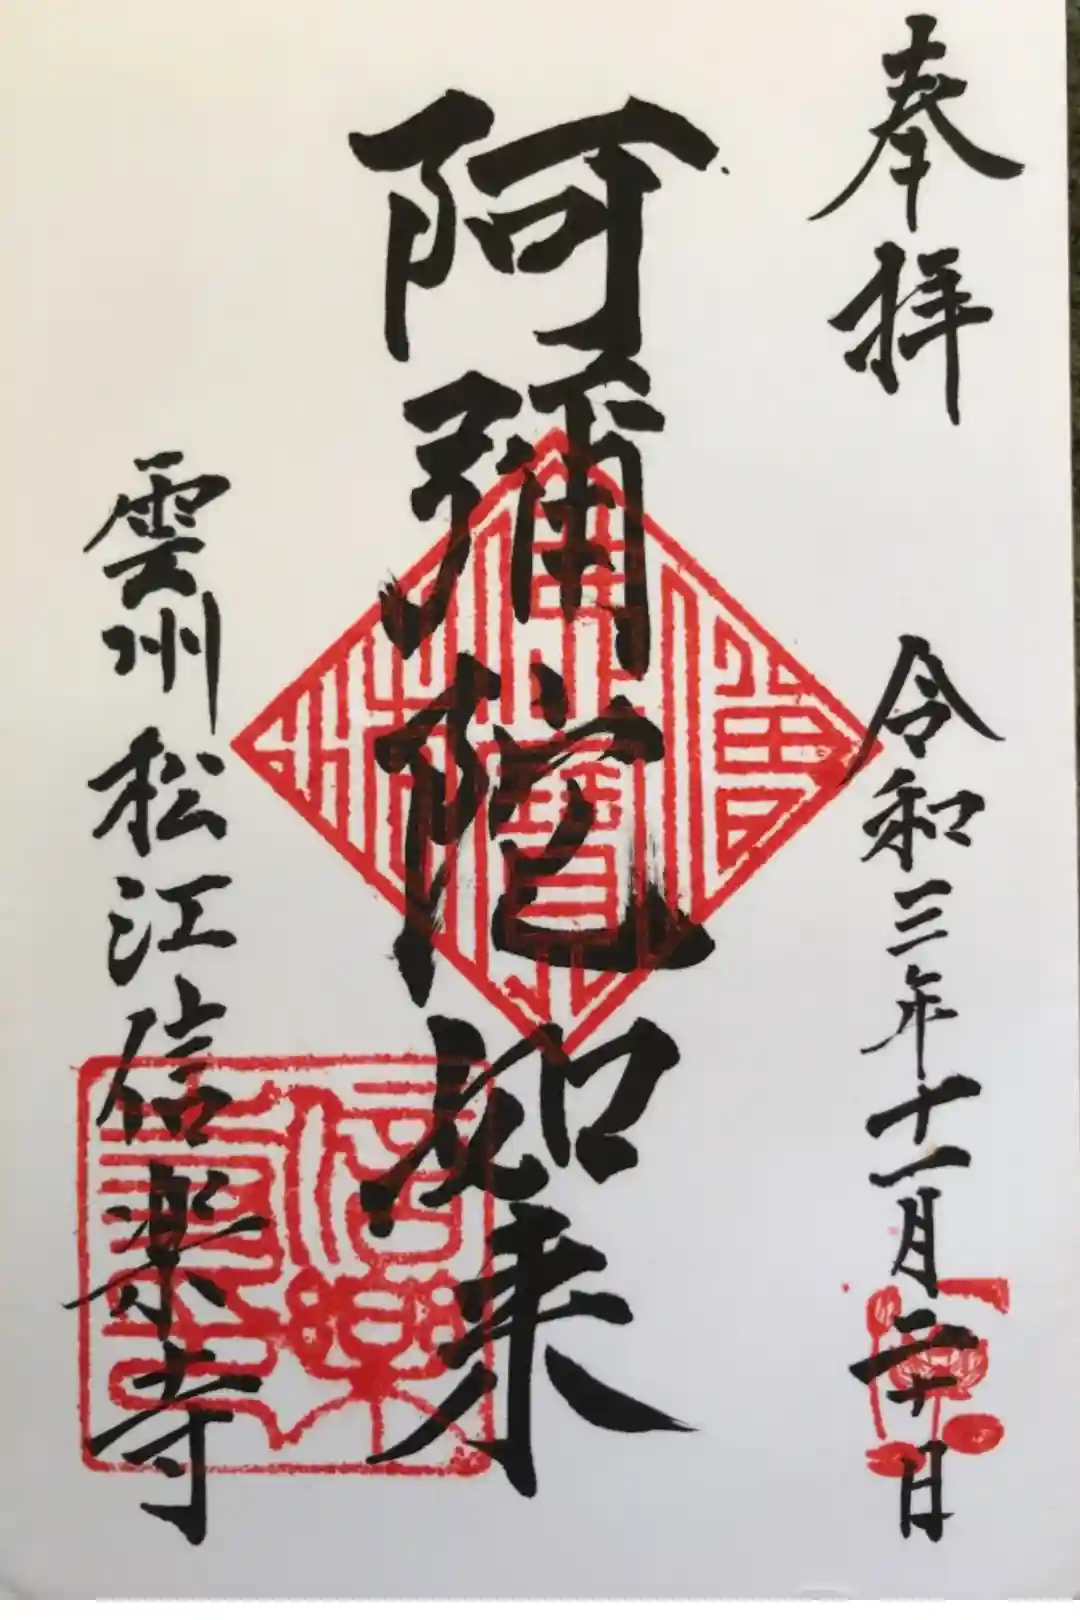 奉拝
令和三年十一月二十日
阿彌陀如来
雲州松江信楽寺